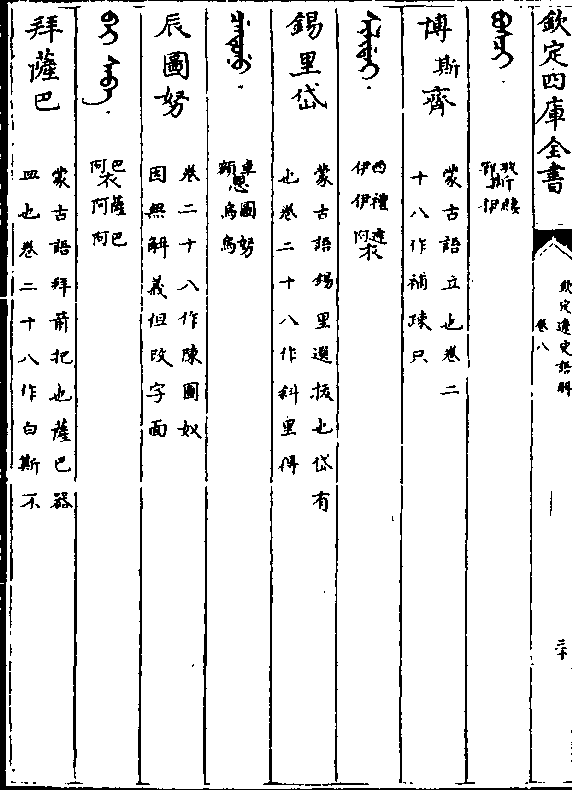 欽定四庫全書
欽定遼史語解
卷八
三十
博斯齊
蒙古語立也卷二
十八作補疎只
西禮達衣
伊伊阿
錫里岱
蒙古語錫里選拔也岱有
也卷二十八作斜里得
車恩圖努
額烏烏
辰圖努
卷二十八作陳圖奴
因無解義但改字面
巴衣薩巴
阿阿阿
拜薩巴
蒙古語拜箭把也薩巴器
皿也卷二十八作白斯不